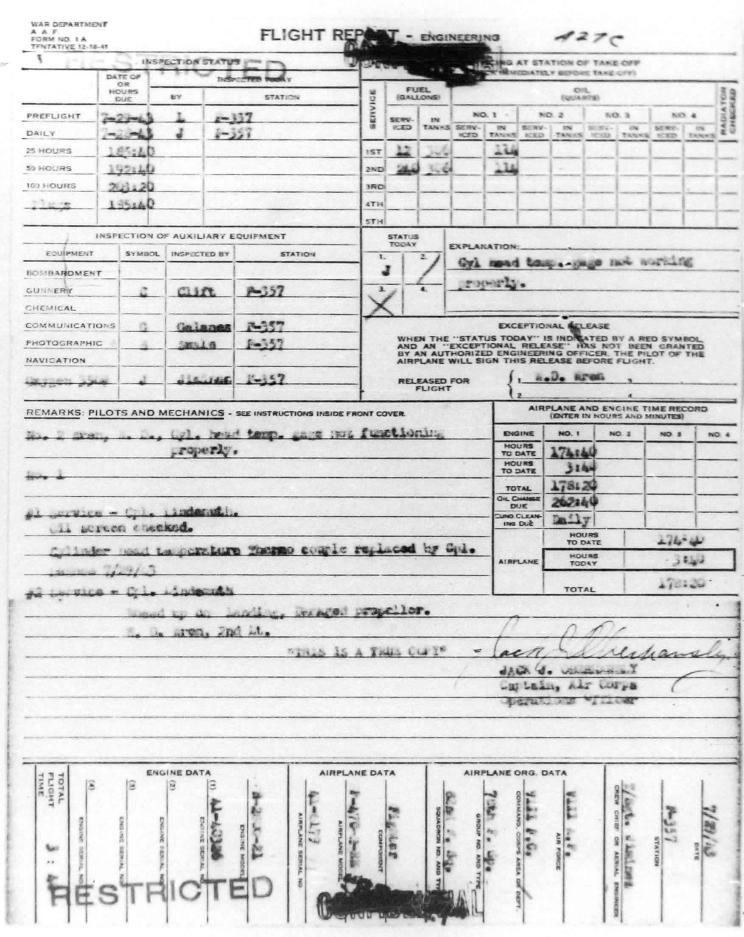 WAR DEPARTMENT
A A F
FORM NO. 1A
TENTATIVE 12-18-41
FLIGHT REPORT - ENGINEERING
RESTRICTED
INSPECTION STATUS
DATE OF OR HOURS DUE
INSPECTED TODAY
BY
STATION
PREFLIGHT 7-29-43 L F-357
DAILY 7-28-43 J F-357
25 HOURS 185:40
50 HOURS 192:40
100 HOURS 203:20
185:40
SERVICING AT STATION OF TAKE-OFF
IMMEDIATELY BEFORE TAKE-OFF)
SERVICE
FUEL (GALLONS)
OIL (QUARTS)
RADIATOR CHECKED
NO. 1 NO. 2 NO. 3 NO. 4
SERVICED IN TANKS SERVICED IN TANKS SERVICED IN TANKS SERVICED IN TANKS SERVICED IN TANKS
1ST 12 306 114
2ND 306 114
3RD
4TH
5TH
INSPECTION OF AUXILIARY EQUIPMENT
EQUIPMENT SYMBOL INSPECTED BY STATION
BOMBARDMENT
GUNNERY C Clift F-357
CHEMICAL
COMMUNICATIONS G Galanes F-357
PHOTOGRAPHIC F-357
NAVIGATION
Oxygen J F-357
STATUS TODAY
1. J 2. /
3. X 4.
EXPLANATION:
Cyl head temp. gage not working
properly.
EXCEPTIONAL RELEASE
WHEN THE "STATUS TODAY" IS INDICATED BY A RED SYMBOL
AND AN "EXCEPTIONAL RELEASE" HAS NOT BEEN GRANTED
BY AN AUTHORIZED ENGINEERING OFFICER, THE PILOT OF THE
AIRPLANE WILL SIGN THIS RELEASE BEFORE FLIGHT.
RELEASED FOR FLIGHT
1. W.D. Aren 3.
2. 4.
REMARKS: PILOTS AND MECHANICS - SEE INSTRUCTIONS INSIDE FRONT COVER.
No. 2 Aren, W. D., Cyl. head temp. gage not functioning
properly.
No. 1
#1 Service - Cpl. Lindemuth.
Oil screen checked.
Cylinder head temperature Thermo couple replaced by Cpl.
7/29/43
#2 Service - Cpl. Lindemuth
Nosed up on Landing, Damaged propellor.
W. D. Aren, 2nd Lt.
"THIS IS A TRUE COPY" -
JACK J. OBERHANSLY
Captain, Air Corps
Operations Officer
AIRPLANE AND ENGINE TIME RECORD
(ENTER IN HOURS AND MINUTES)
ENGINE NO. 1 NO. 2 NO. 3 NO. 4
HOURS TO DATE 174:40
HOURS TO DATE 3:40
TOTAL 178:20
OIL CHANGE DUE 262:40
CUNO CLEANING DUE Daily
AIRPLANE
HOURS TO DATE 174:40
HOURS TODAY 3:40
TOTAL 178:20
TOTAL FLIGHT TIME
ENGINE DATA
(4) ENGINE SERIAL NO
(3) ENGINE SERIAL NO
(2) ENGINE SERIAL NO
(1) ENGINE SERIAL NO
ENGINE MODEL
AIRPLANE DATA
AIRPLANE SERIAL NO
AIRPLANE MODEL
Fighter
COMPONENT
AIRPLANE ORG. DATA
SQUADRON NO. AND TYPE
78th F. Gp.
GROUP NO. AND TYPE
VIII F.C.
COMMAND, CORPS AREA OR DEPT.
VIII A.F.
AIR FORCE
CREW CHIEF OR AERIAL ENGINEER
F-357
STATION
7/29/43
DATE
RESTRICTED